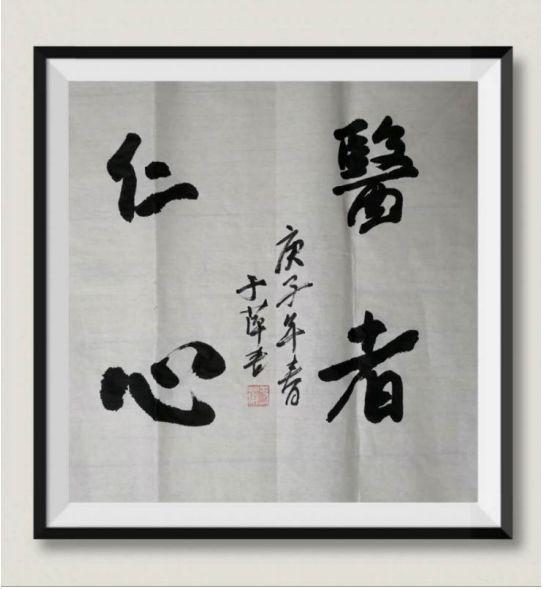 醫者
仁心
庚子年春
于萍書